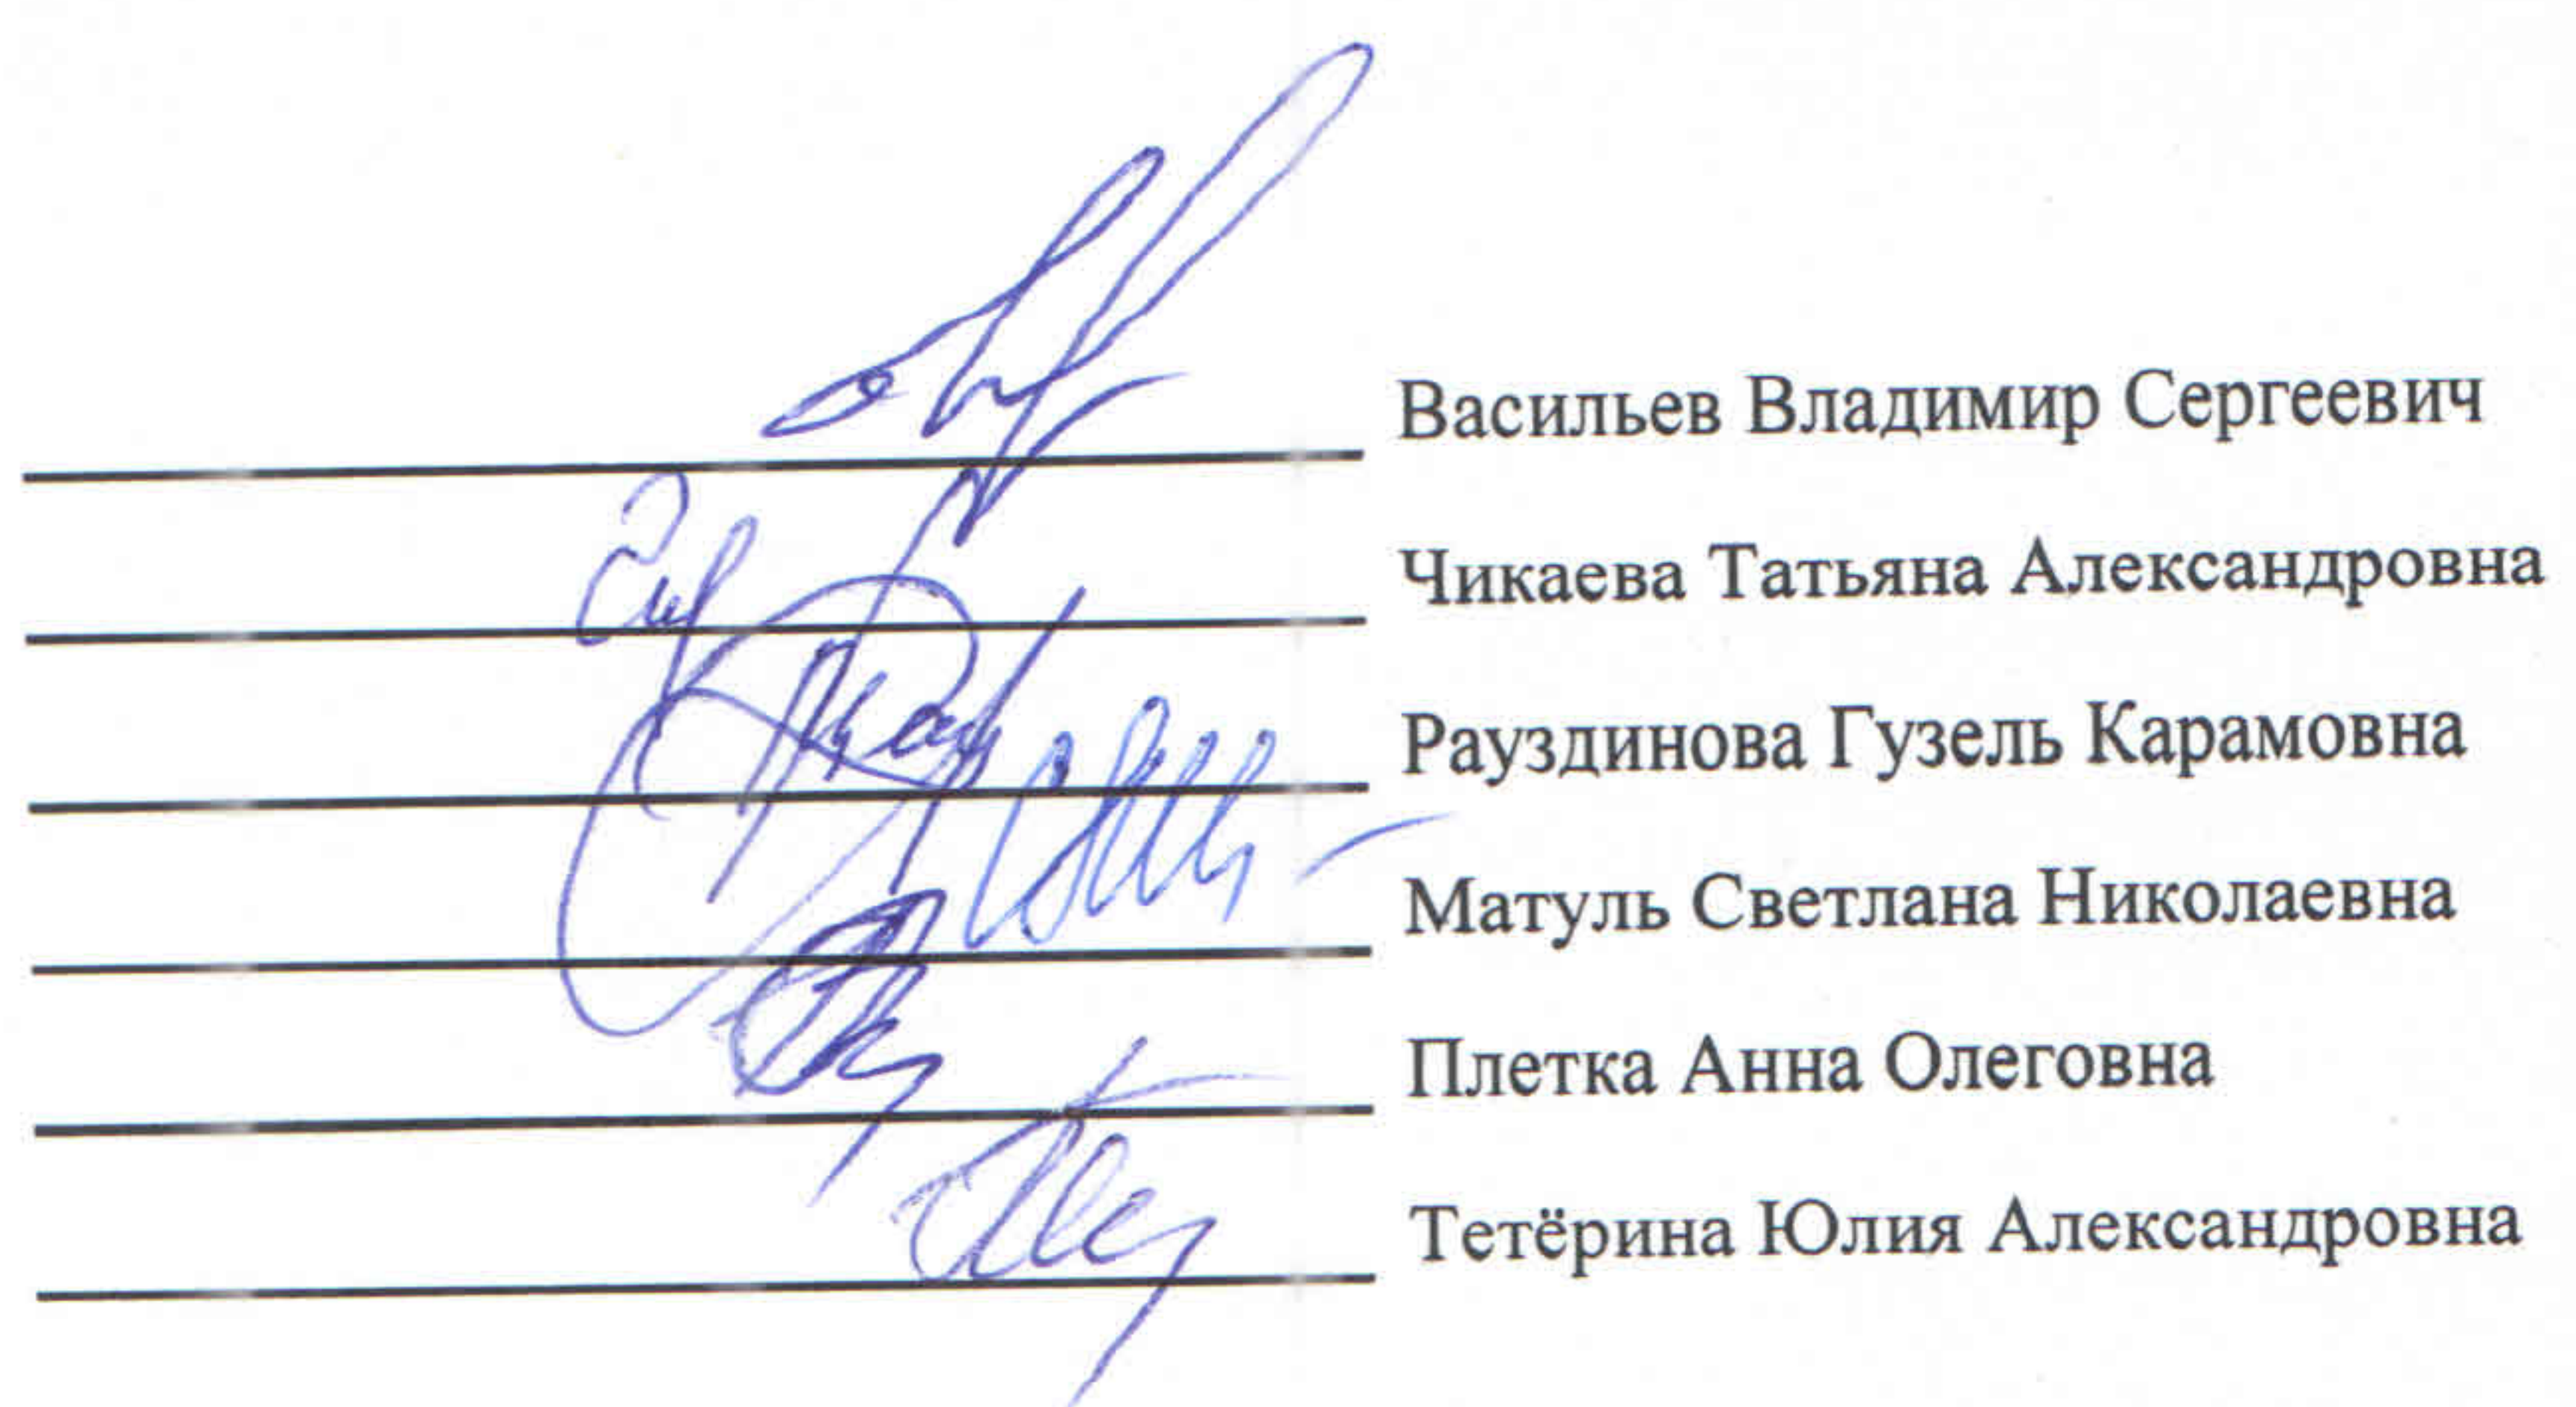 Васильев Владимир Сергеевич
Чикаева Татьяна Александровна
Рауздинова Гузель Карамовна
Матуль Светлана Николаевна
Плетка Анна Олеговна
Тетёрина Юлия Александровна